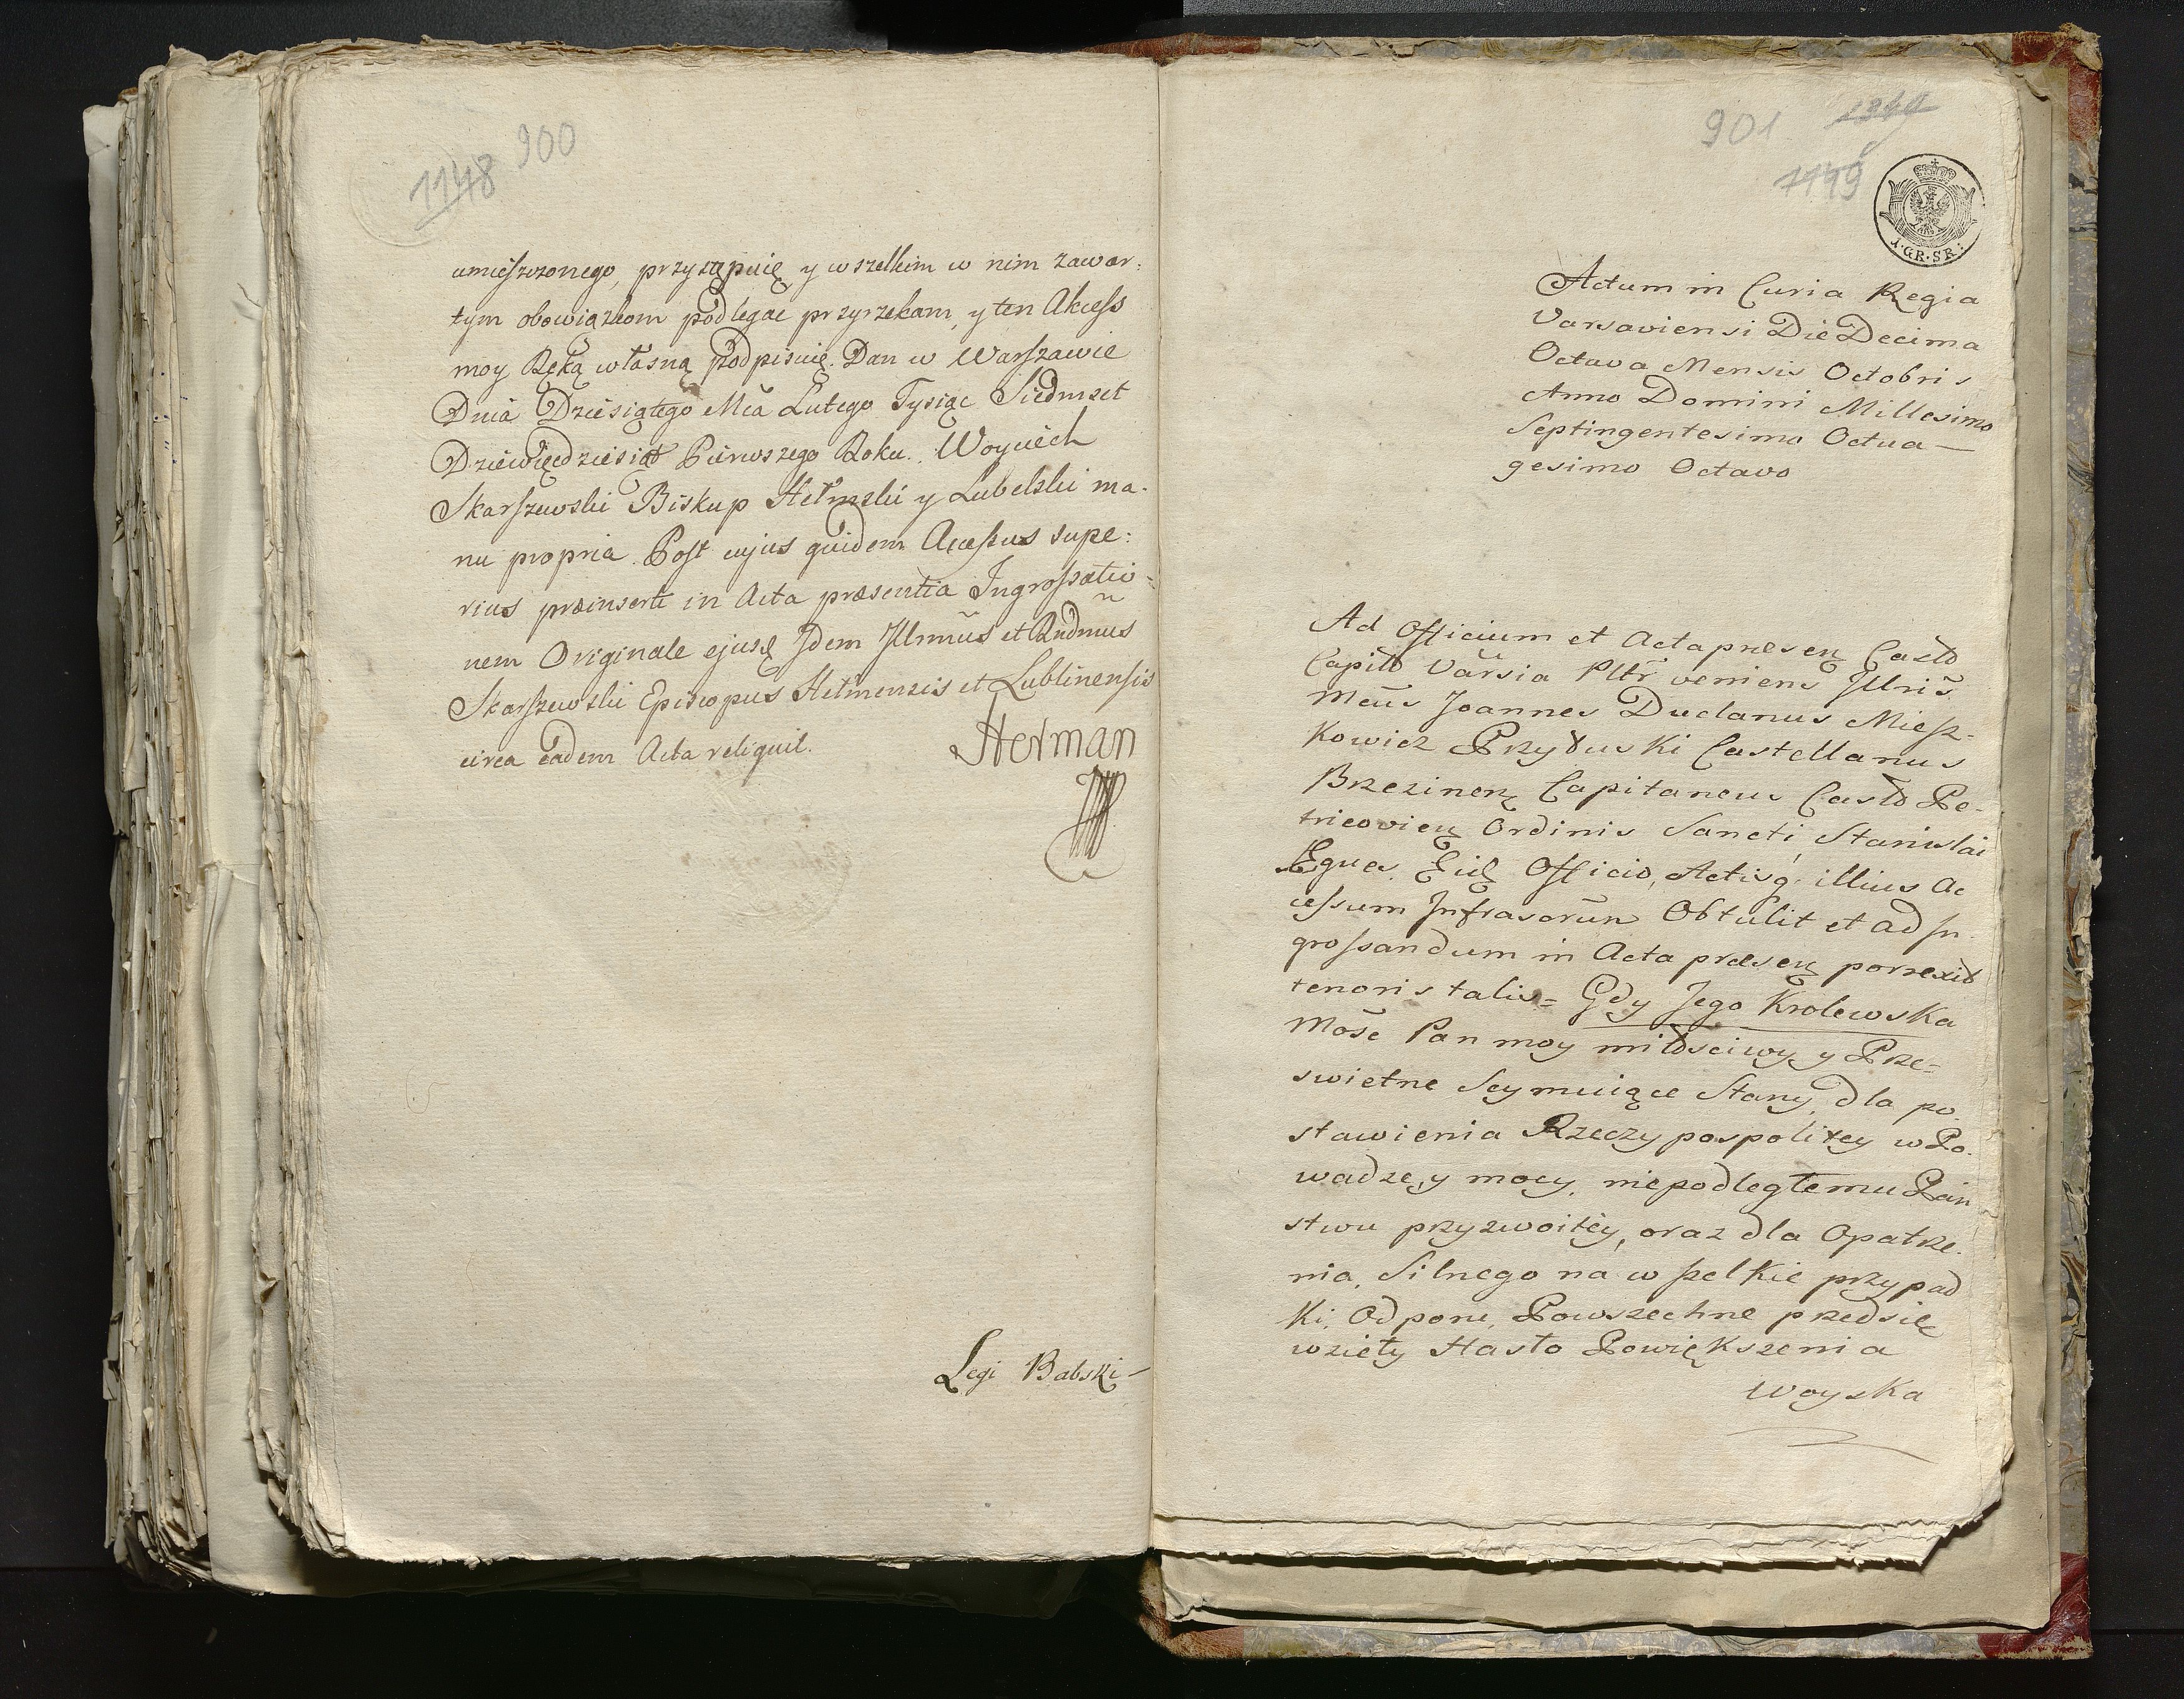 1148 900
umieſzczonego, przystępuię y wszelkim w nim zawar:
tym obowiązkom podlegac przyrzekam, y ten Akceſs
moy Ręką własną podpisuię. Dan w Warſzawie
Dnia Dziesiątego Mca Lutego Tysiąc Siedmset
Dziewięcdziesiąt Pierwszego Roku. Woyciech
Skarſzewski Biskup Hełmski y Lubelski ma-
nu propria. Poſt cujus quidem Acceſsus supe:
rius præinserti in Acta præsentia Ingroſsatio-
nem Originale ejusꝫ Idem Illrmus et Rndmus
Skarſzewski Episcopus Hełmensis et Lublinenſis
circa eadem Acta reliquit.
Herman
Legi Babski
901 1149
1.GR.SR:
Actum in Curia Regia
Varsaviensi Die Decima
Octava Mensis Octobris
Anno Domini Millesimo
Septingentesimo Octua-
gesimo Octavo
Ad Officium et Acta præsenꝫ Castr
Capitł Varsia Pltr veniens Illris
Mcus Joannes Duclanus Mieſz-
kowicz Przyłuski Castellanus
Brzezinenꝫ Capitaneus Castr Pe-
tricovienꝫ Ordinis Sancti Stanislai
Eques Eidꝫ Officio, Actisq. illius Ac
ceſsum Infrascrūn Obtulit et ad In-
groſsandum in Acta præsenꝫ porrexit
tenoris talis= Gdy Jego Krolewska
Mośc Pan moy miłosciwy y Prze=
swietne Seymuiące Stany, dla po-
stawienia Rzeczypospolitey w Po-
wadze, y mocy, niepodległemu Pań
stwu przyzwoitéy, oraz dla Opatrze-
nia, Silnego na wſzelkie przypad
ki, Odporu, Powszechne przedsię
wzięły Hasło Powiększenia
Woyska